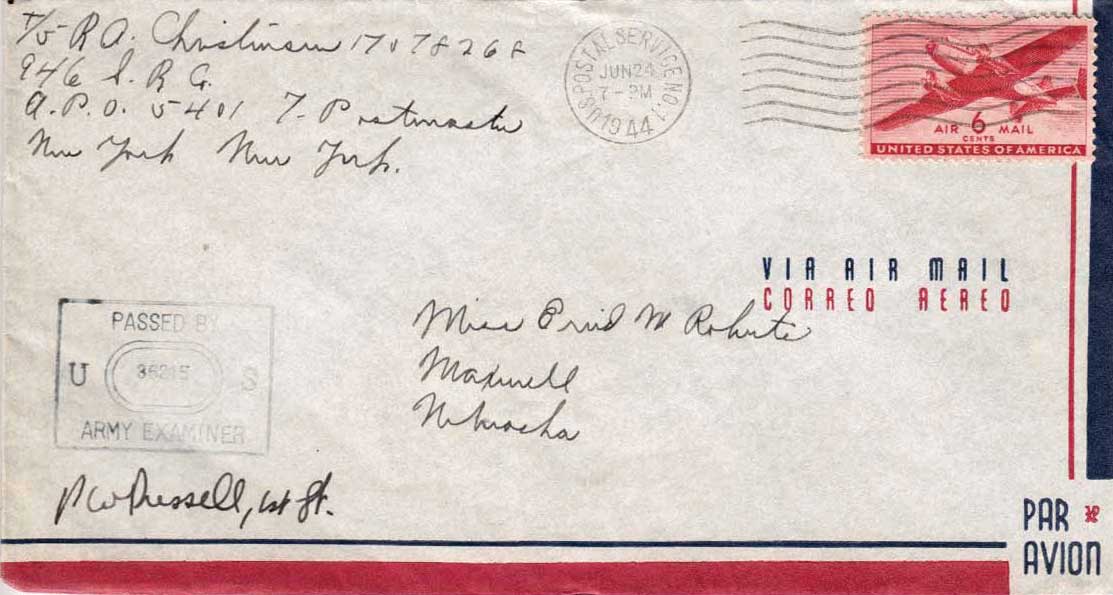 T/5 R A. Christensen 17078268
946 S. R. G.
A.P.O. 5401 % Postmaster
New York New York.
U.S. POSTAL SERVICE NO. 1
JUN 24
7 - PM
1944
AIR 6 MAIL
CENTS
UNITED STATES OF AMERICA
VIA AIR MAIL
CORREO AEREO
PASSED BY
U 36215 S
ARMY EXAMINER
Miss Enid M Roberts
Maxwell
Nebraska
1st Lt.
PAR
AVION